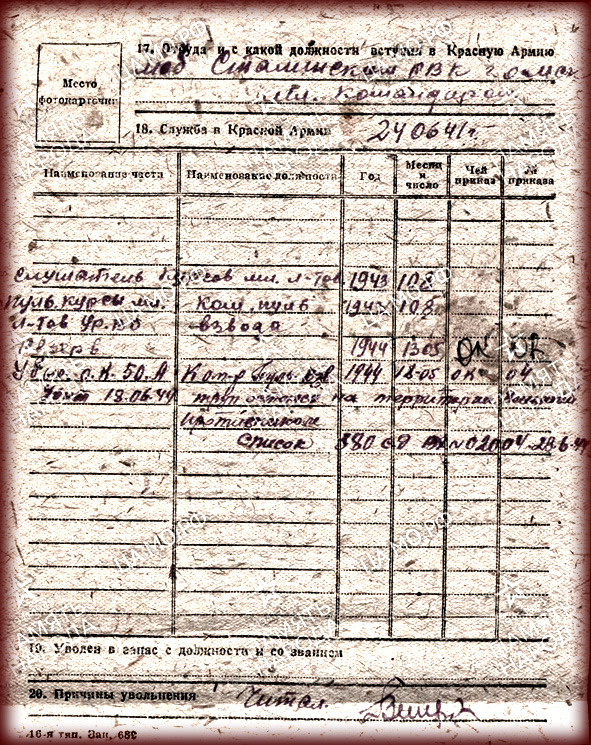 17. Откуда и с какой должности вступил в Красную Армию
Место
фотокарточки
моб Сталинским РВК г. Омск
Командиром
18. Служба в Красной Армии 24 06 41 г
Наименование части Наименование должности Год Месяц и число Чей приказ № приказа
Слушатель Курсов мл. л-тов 1943 10.8
Пульк. курсы мл. Ком. пуль 1943 10.8
л-тов взвода
Резерв 1944 13 05 ОК
Убыл О.К. 50.А Ком-р Пуль. взв 1944 18-05 ОК 04
Убит 18.06.44 труп остался на территории
Противником
Список 380 СД Вх №02004 28.6.44
19. Уволен в запас с должности и со званием
20. Причины увольнения Читал
16-я тип. Зак. 682